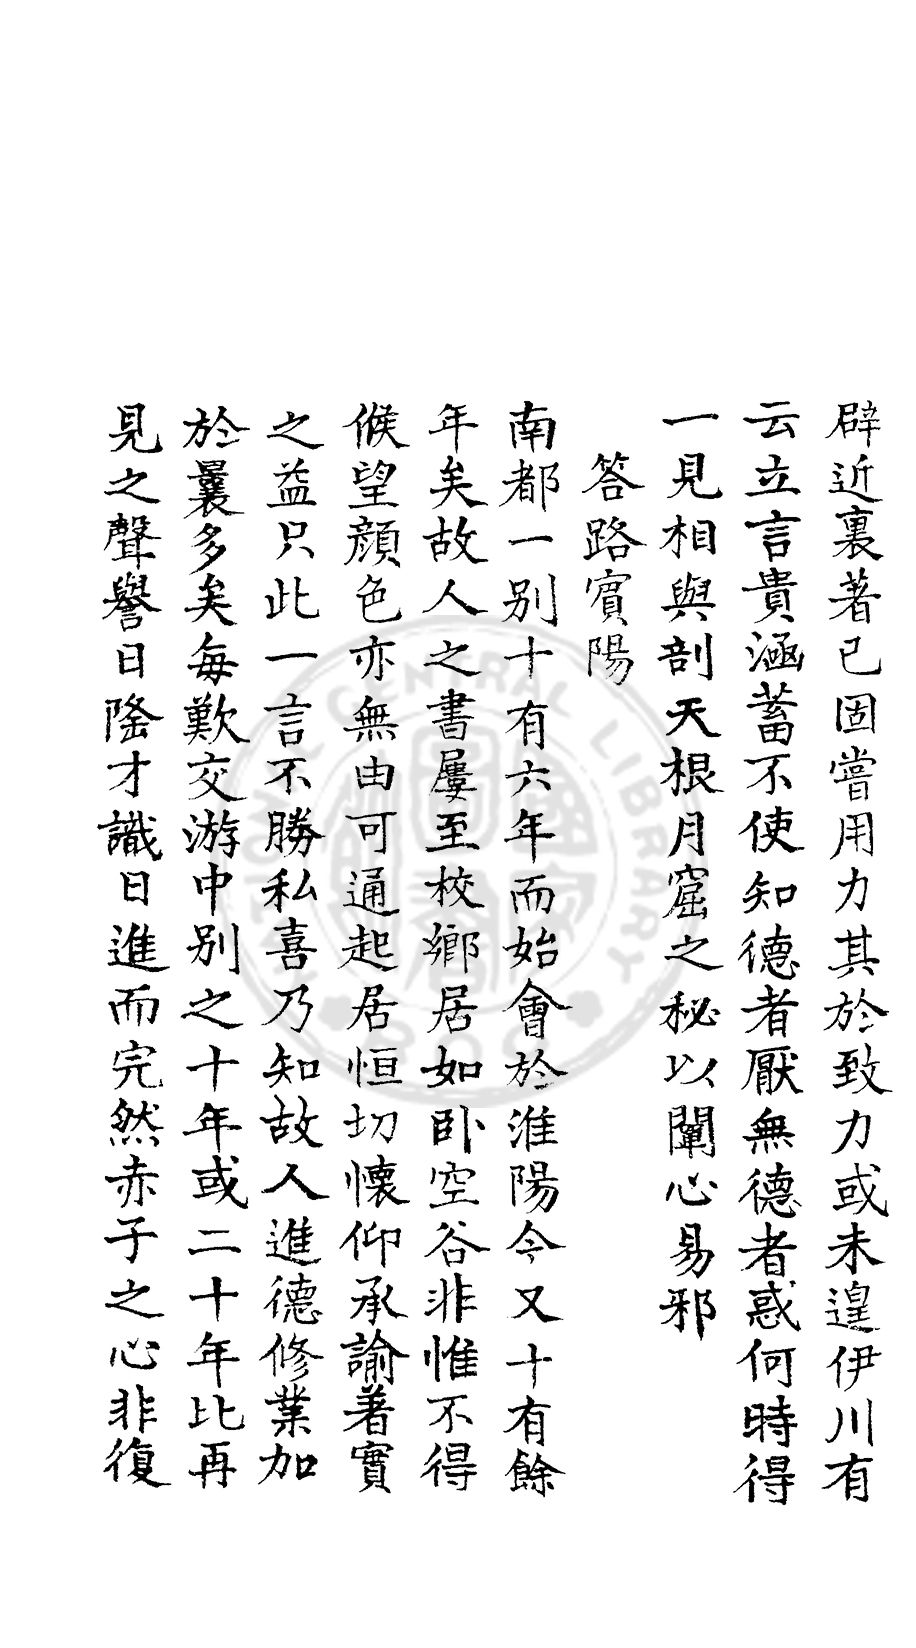 辟近裏著已固嘗用力其於致力或未遑伊川有
云立言貴涵蓄不使知德者厭無德者惑何時得
一見相與剖天根月窟之秘以闡心易邪
答路賓陽
南都一别十有六年而始會於淮陽今又十有餘
年矣故人之書屢至校鄉居如卧空谷非惟不得
候望顔色亦無由可通起居恒切懷仰承諭著實
之益只此一言不勝私喜乃知故人進德修業加
於曩多矣每歎交游中别之十年或二十年比再
見之聲譽日隆才識日進而完然赤子之心非復
NATIONAL CENTRAL LIBRARY